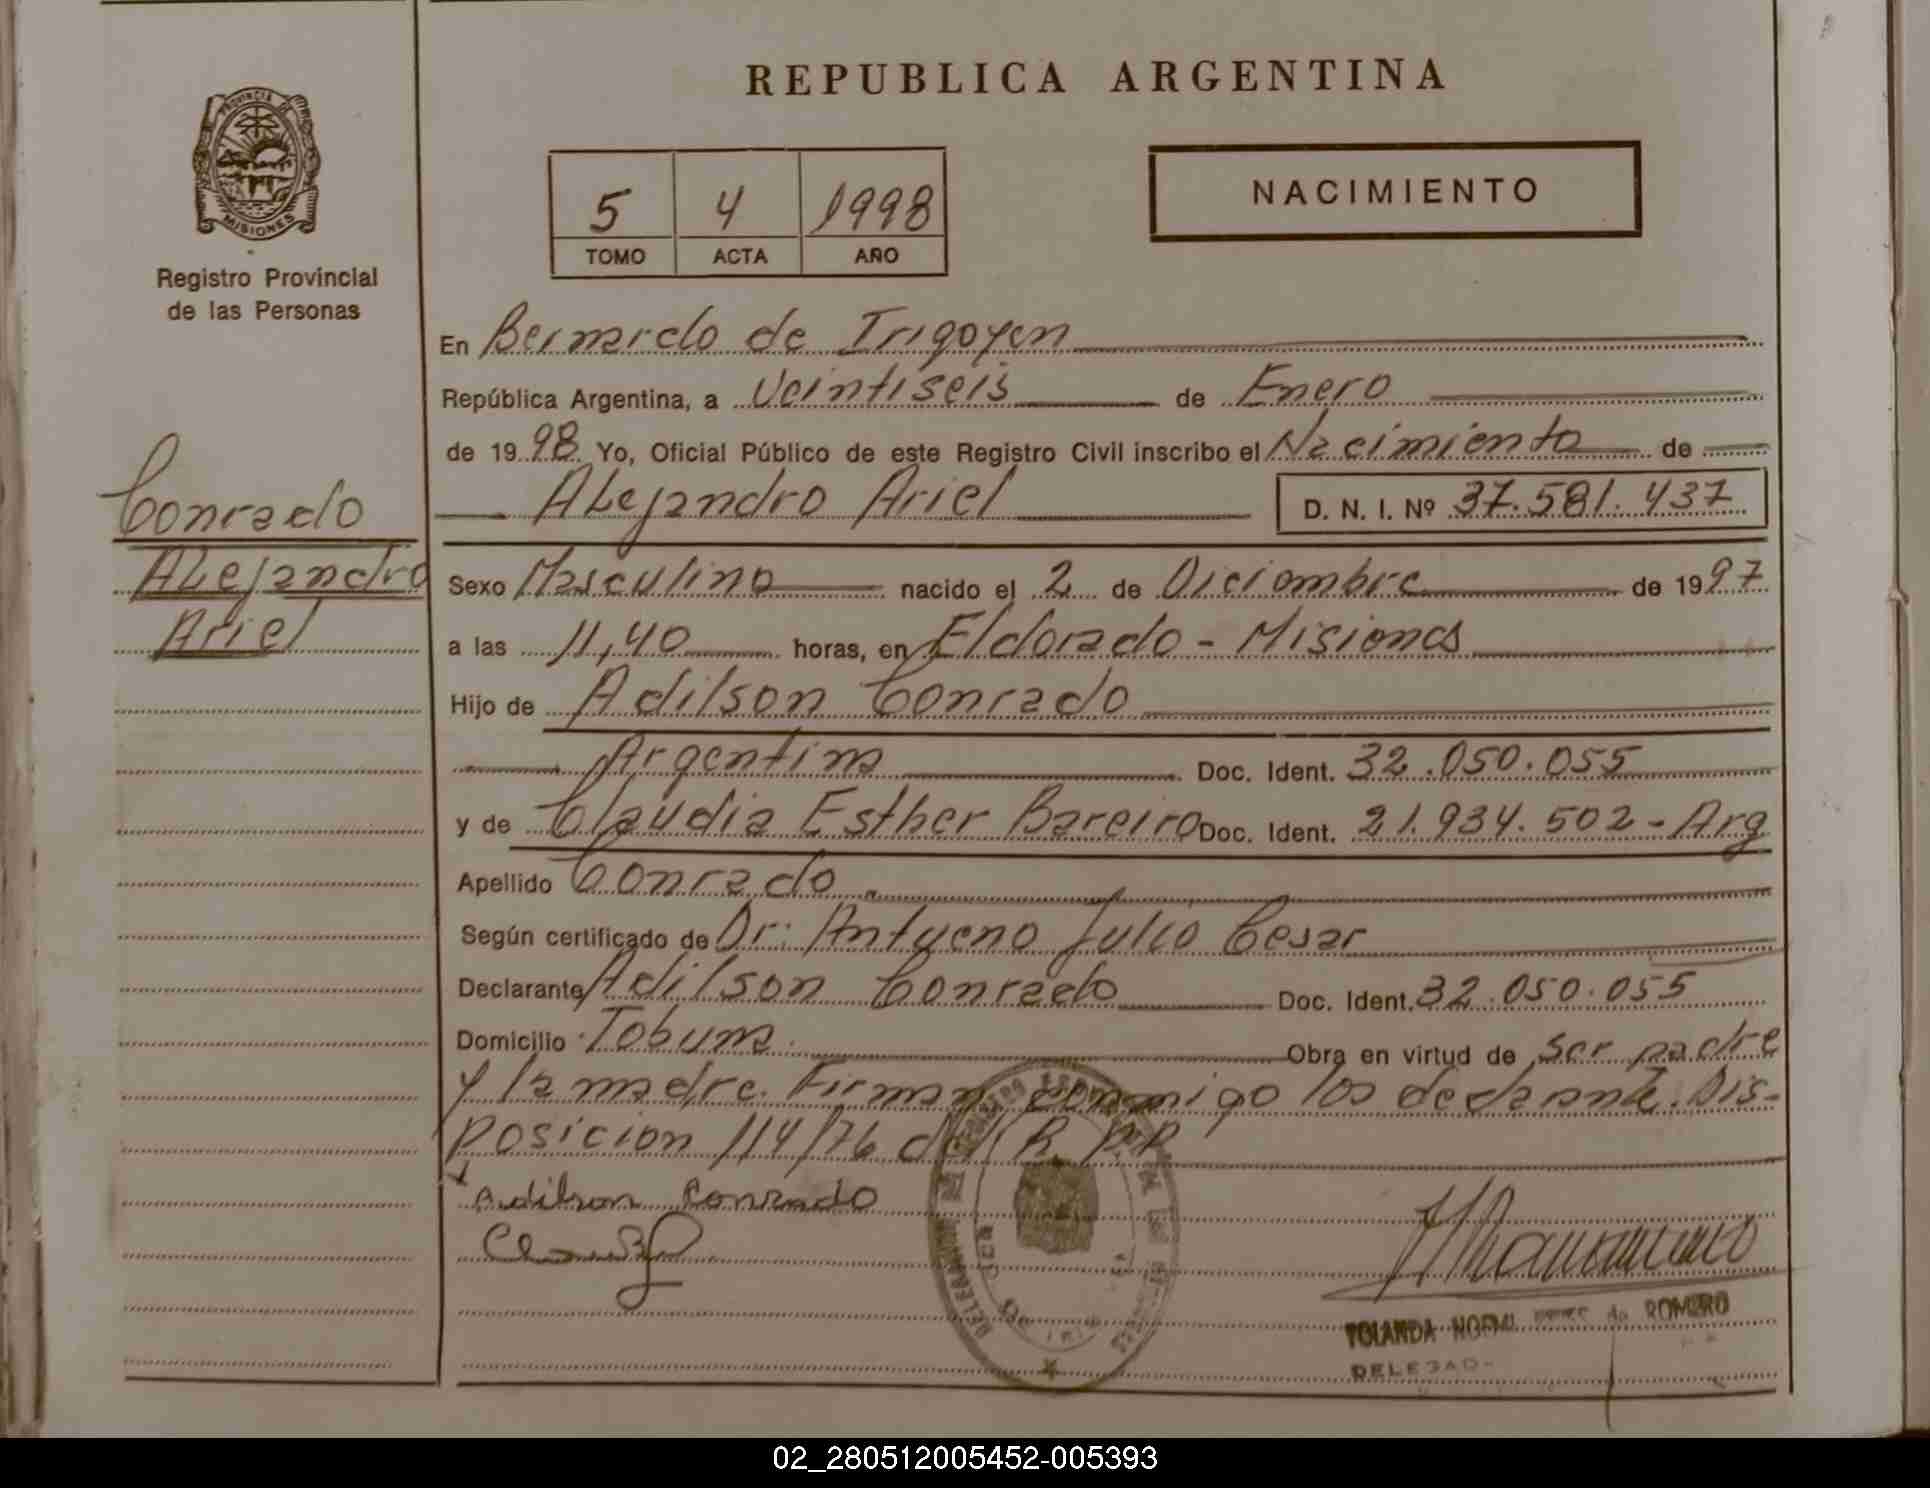 REPUBLICA ARGENTINA
PROVINCIA DE
MISIONES
Registro Provincial
de las Personas
5 4 1998
TOMO ACTA AÑO
NACIMIENTO
En Bernardo de Irigoyen
República Argentina, a Veintiseis de Enero
de 1998 Yo, Oficial Público de este Registro Civil inscribo el Nacimiento de
Alejandro Ariel D. N. I. Nº 37.581.437
Conrado
Alejandro
Ariel
Sexo Masculino nacido el 2 de Diciembre de 1997
a las 11,40 horas, en Eldorado - Misiones
Hijo de Adilson Conrado
Argentina Doc. Ident. 32.050.055
y de Claudia Esther Bareiro Doc. Ident. 21.934.502 - Arg
Apellido Conrado
Según certificado de Dr: Antueno Julio Cesar
Declarante Adilson Conrado Doc. Ident. 32.050.055
Domicilio Tobuna Obra en virtud de ser padre
y la madre. Firman conmigo los declarante. Dis-
posicion 114/76 del R.P.P
Adilson Conrado
YOLANDA NOEMI de ROMERO
02_280512005452-005393